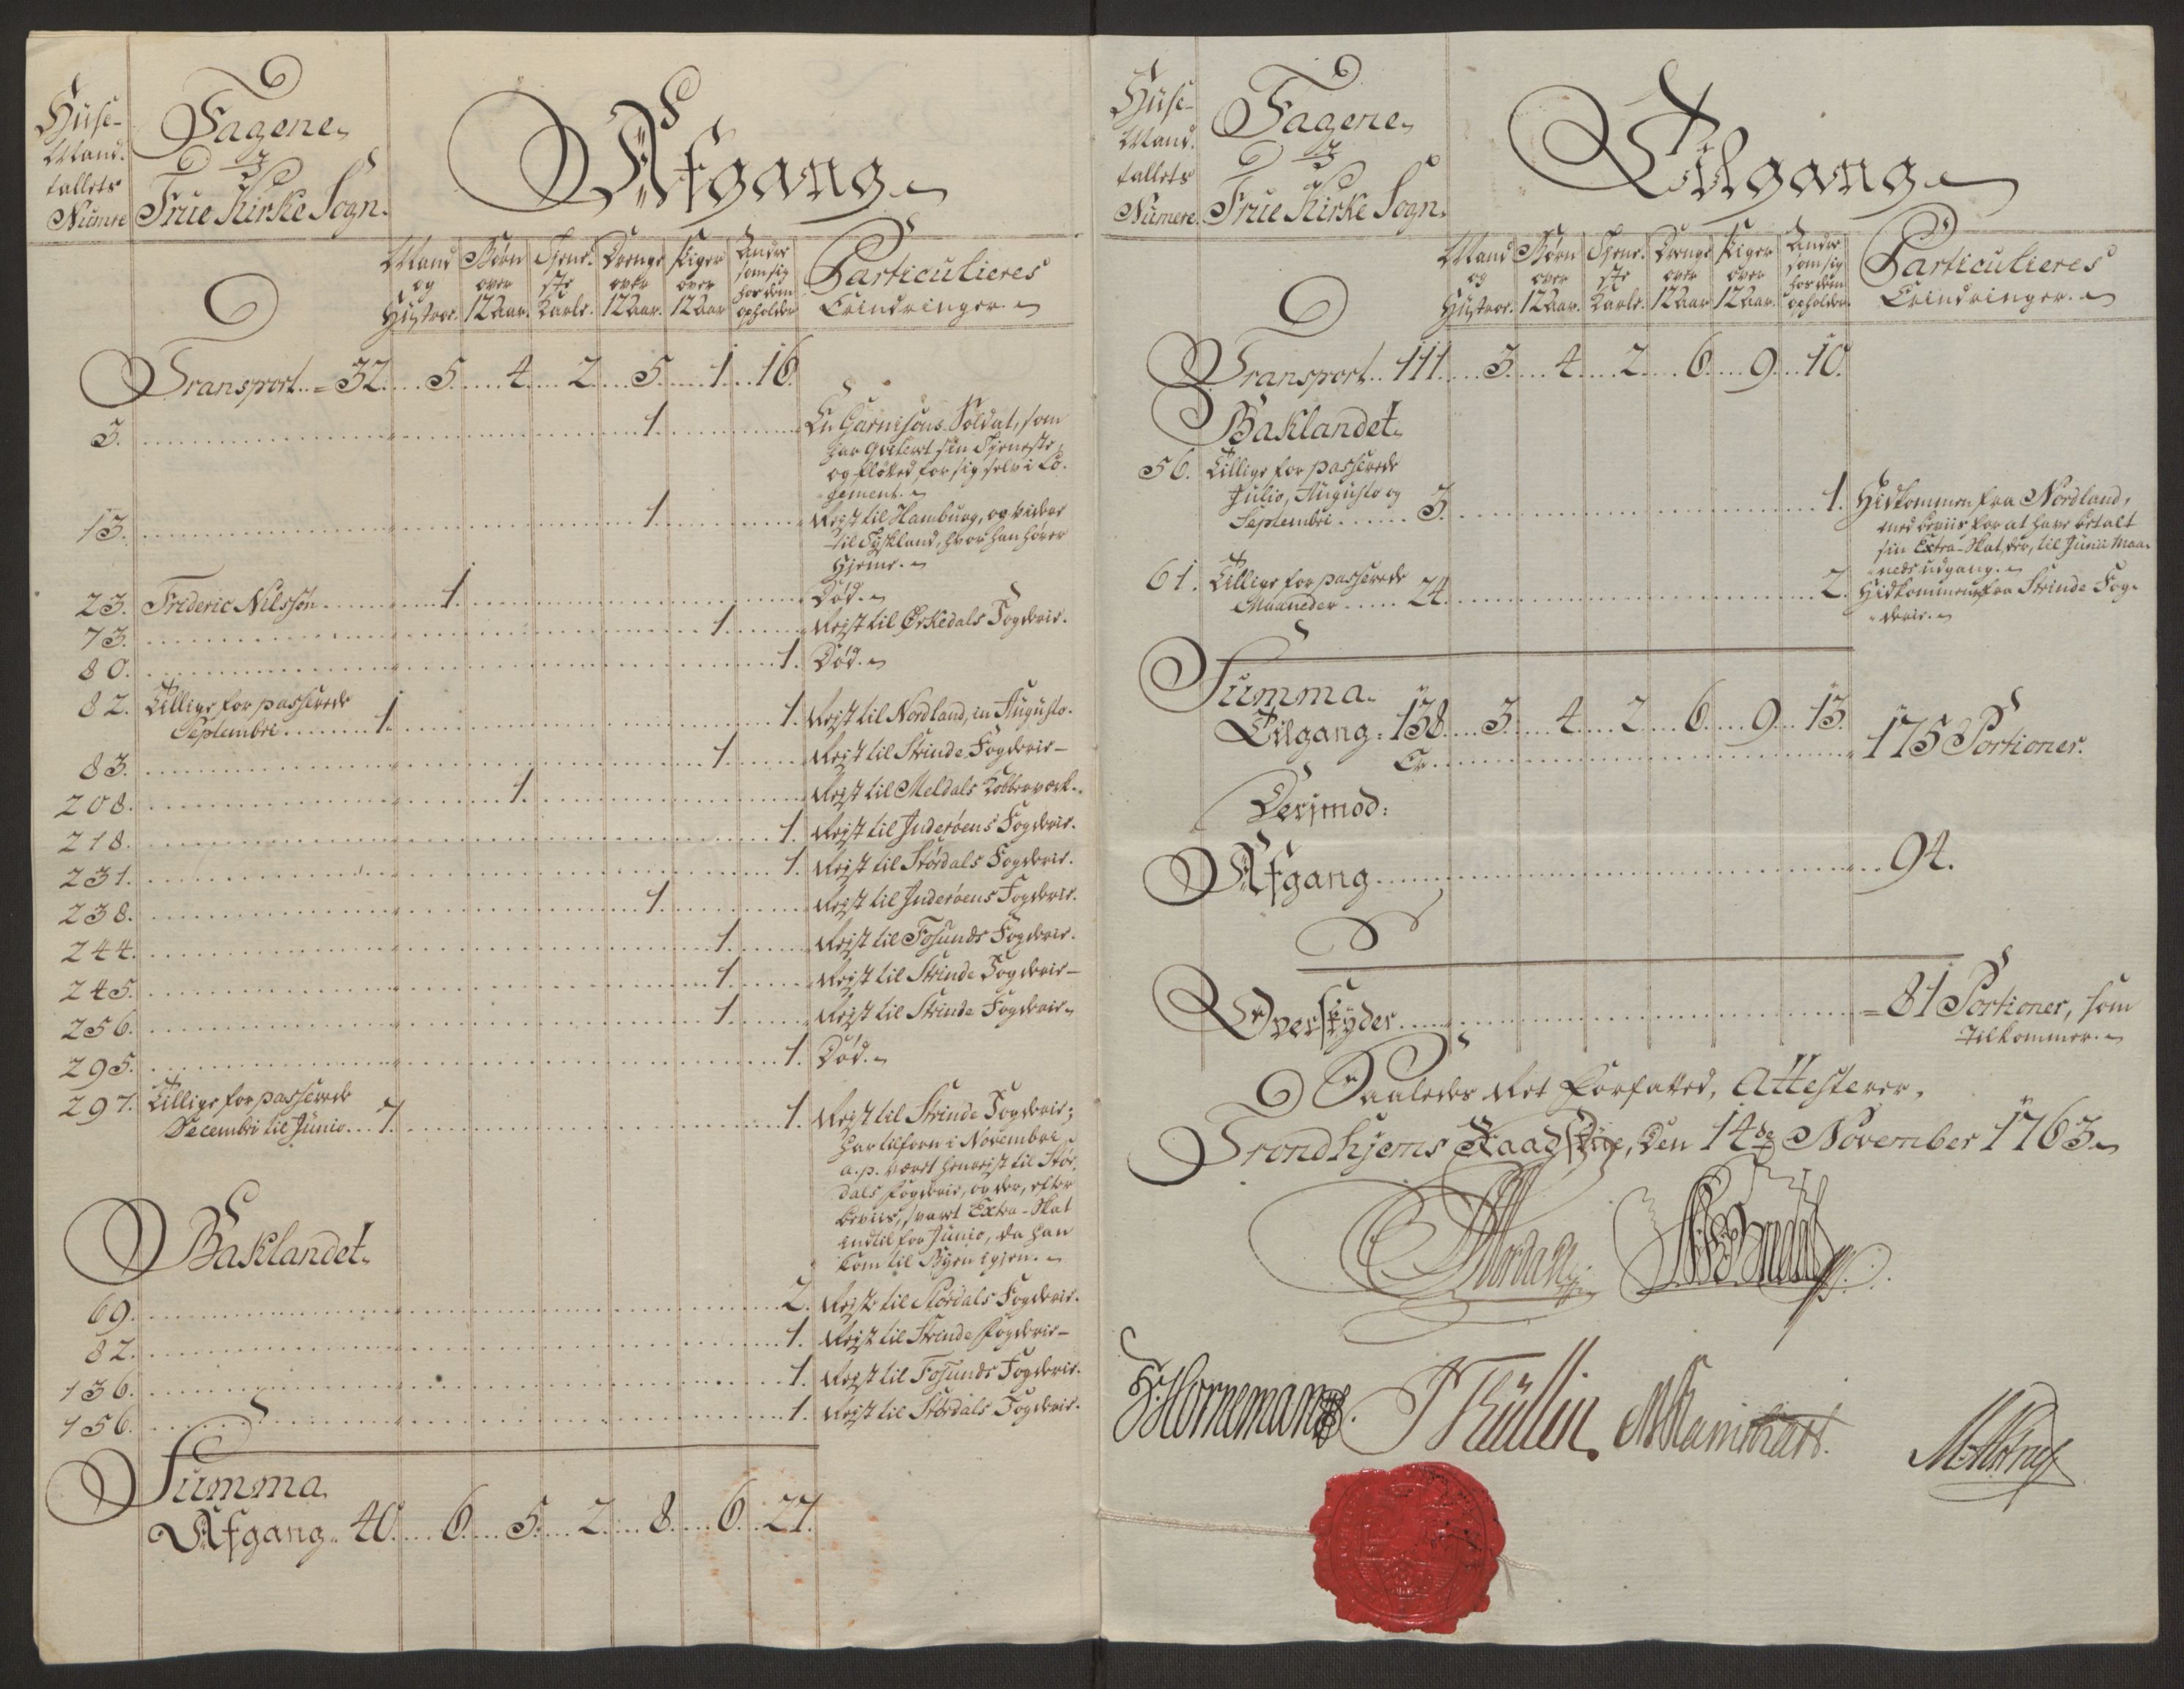 Huse-
Mand-
tallets
Numre
Tagene
I
Frue Kirke Sogn.
Afgang
Mand og Hustroe.
Børn over 12 Aar.
Tjene-ste Karle.
Drenge over 12 Aar.
Piger over 12 Aar
Andre som sig hos dem opholder
Particulieres Erindringer.
Transport.. 32. 5. 4. 2. 5. 1. 16.
3. 1. En Garnisons Soldat, som
har qvitert sin Tjeneste,
og fløtted for sig selv i Lo-
gement.
13. 1. Rejst til Hamburg, og videre
til Tyskland, hvor han hører
hjeme.
23. Frideric Nilssøn 1. Død.
73. 1. Rejst til Ørkedals Fogderie.
80. 1. Død.
82. Tillige for passerede
Septembri 1. 1. Rejst til Nordland, in Augusto.
83. 1. Rejst til Strinde Fogderie
208. 1. Rejst til Meldals Kobberverk.
218. 1. Rejst til Inderøens Fogderie.
231. 1. Rejst til Størdals Fogderie.
238. 1. Rejst til Inderøens Fogderie.
244. 1. Rejst til Fosunds Fogderie.
245. 1. Rejst til Strinde Fogderie
256. 1. Rejst til Strinde Fogderie
295. 1. Død.
297. Tillige for passerede
Decembri til Junio 7. 1. Rejst til Strinde Fogderie;
har tilforn i Novembri
a. p. været henrejst til Stør-
dals Fogderie, og der, efter
beviis, svaret Extra-Skat
indtil for Junio, da han
kom til Byen igjen.
Baklandet.
69. 2. Rejste til Størdals Fogderie.
82. 1. Rejst til Strinde Fogderie
136. 1. Rejst til Fosunds Fogderie.
156. 1. Rejst til Størdals Fogderie.
Summa
Afgang 40. 6. 5. 2. 8. 6. 27.
Huse-
Mand-
tallets
Numere
Tagene
I
Frue Kirke Sogn.
Tilgang
Mand og Hustroe.
Børn over 12 Aar.
Tjene-ste Karle.
Drenge over 12 Aar
Piger over 12 Aar.
Andre som sig hos dem opholder.
Particulieres Erindringer.
Transport.. 111. 3. 4. 2. 6. 9. 10.
Baklandet.
56. Tillige for passerede
Julio, Augusto og
Septembri 3. 1. Hidkommen fra Nordland,
med beviis for at have betalt
sin Extra-Skat, der, til Junii Maa-
neds udgang.
61. Tillige for passerede
Maaneder 24. 2. Hidkommen fra Strinde Fog-
derie.
Summa
Tilgang 138. 3. 4. 2. 6. 9. 13.
Er 175 Portioner.
Derjmod:
Afgang 94.
Overskyder 81 Portioner, som
tilkommer.
Saaledes Ret Forfatted, Attesterer,
Trondhjems Raadstue, Den 14de November 1763.
H. Hornemann.